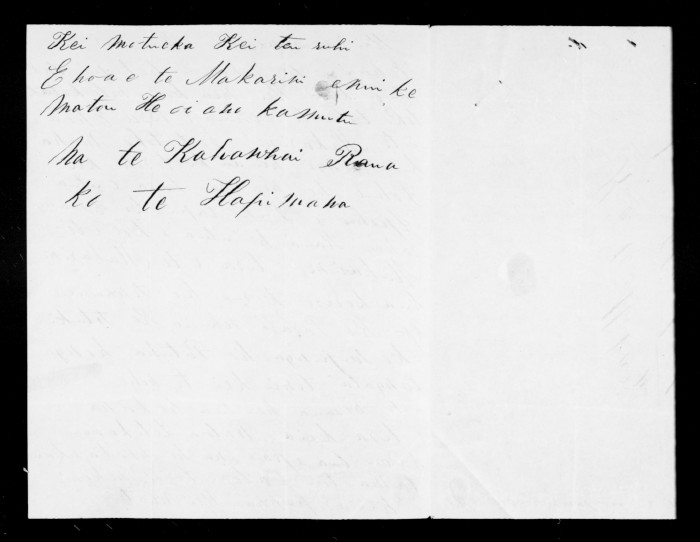 Kei motueka Kei tau ruhi
E hoa e te Makarini ke
matou Heoi ano kamutu
Na te Kahawhai Rana
ko te Hapimana